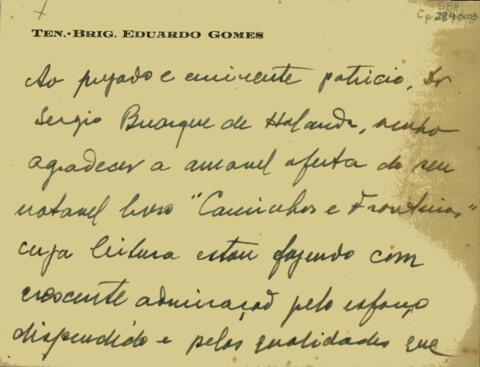 Cp 289 P13
TEN.-BRIG. EDUARDO GOMES
Ao prezado e eminente patricio, Dr
Sergio Buarque de Holanda, venho
agradecer a amavel oferta do seu
notavel livro "Caminhos e Fronteiras"
cuja leitura estou fazendo com
crescente admiração pelo esforço
dispendido e pelas qualidades que